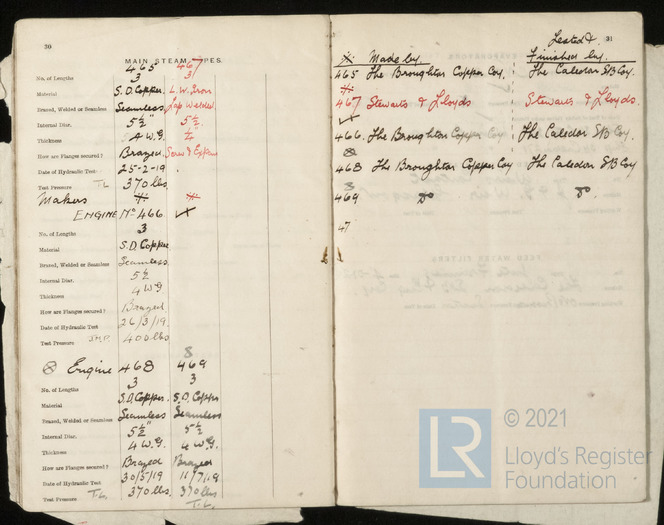 30
MAIN STEAM PIPES.
465 467
No. of Lengths 3 3
Material S.D. Copper. L.W. Iron
Brazed, Welded or Seamless Seamless Lap Welded
Internal Diar. 5½" 5½"
Thickness 4 W.G. ¼"
How are Flanges secured? Brazed Screwd & Expan
Date of Hydraulic Test 25-2-19
Test Pressure T.L. 370 lbs.
Makers
ENGINE No 466
No. of Lengths 3
Material S.D. Copper
Brazed, Welded or Seamless Seamless
Internal Diar. 5½
Thickness 4 W.G
How are Flanges secured? Brazed
Date of Hydraulic Test 26/3/19.
Test Pressure J.M.P. 400 lbs
8
Engine 468 469
No. of Lengths 3 3
Material S.D. Copper. S.D. Copper
Brazed, Welded or Seamless Seamless Seamless
Internal Diar. 5½" 5½
Thickness 4 W.G. 4 W.G.
How are Flanges secured? Brazed Brazed
Date of Hydraulic Test 30/5/19 11/7/19
Test Pressure T.L. 370 lbs. 370 lbs
T.L.
31
Tested &
Made by. Finished by.
465 The Broughton Copper Coy. The Caledon S/B Coy.
467 Stewarts & Lloyds Stewarts & Lloyds.
466. The Broughton Copper Coy The Caledon S/B Coy.
8
468 The Broughton Copper Coy The Caledon S/B Coy
8
469 Do Do.
47
FEED WATER FILTERS
© 2021
LR
Lloyd's Register
Foundation